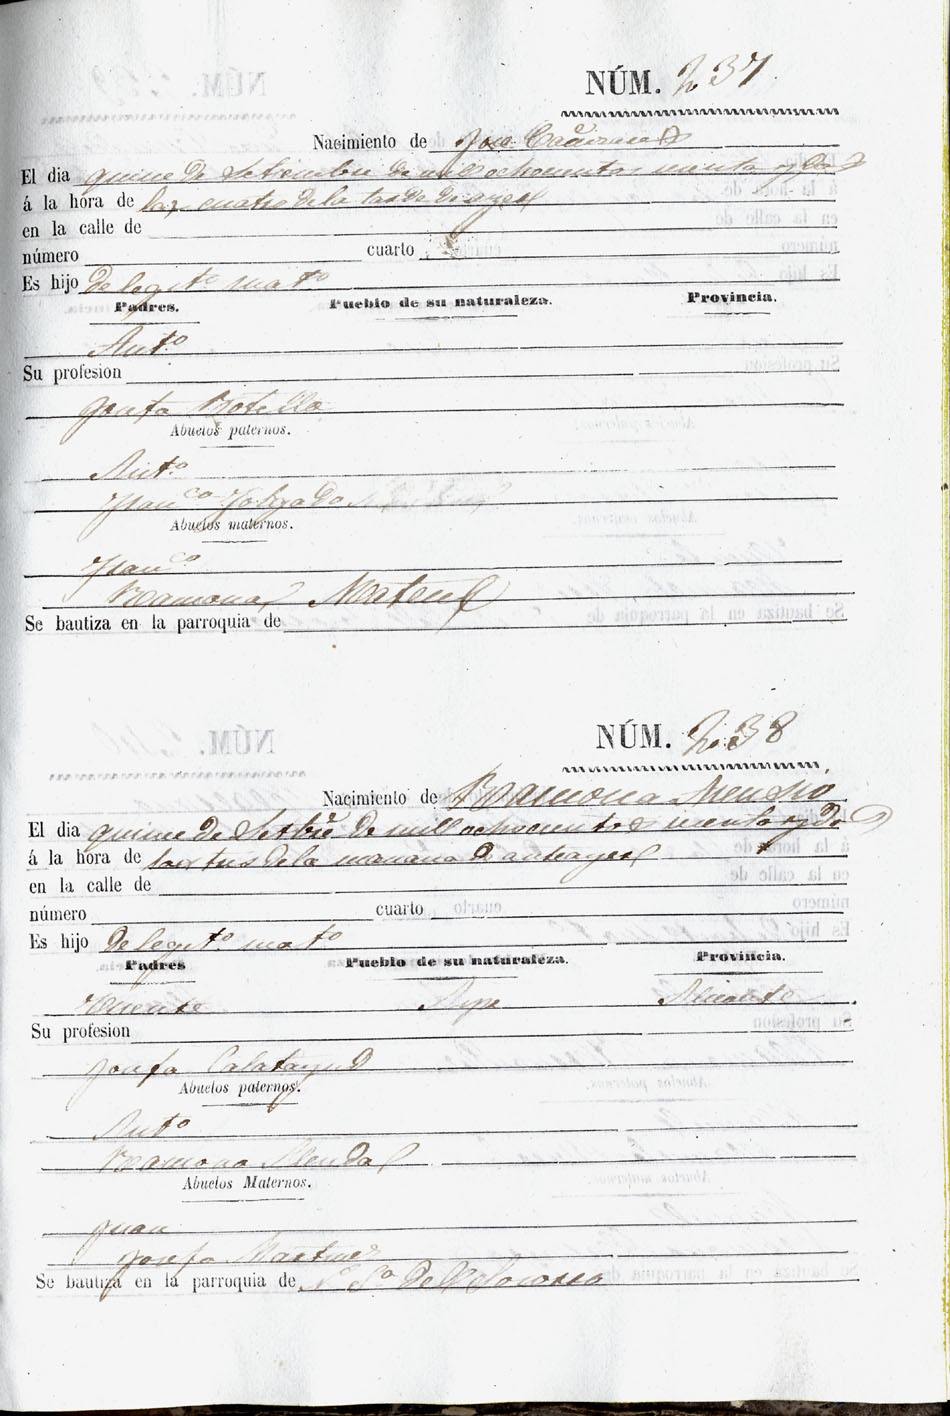 NÚM. 237
Nacimiento de José
El dia quince de Setiembre de mill ochocientos y dos
á la hora de las cuatro de la tarde de ayer
en la calle de
número cuarto
Es hijo de legmo. matº
Padres. Pueblo de su naturaleza. Provincia.
Antº
Su profesion
Josefa Botella
Abuelos paternos.
Antº
Francª
Abuelos maternos.
Francº
Ramona
Se bautiza en la parroquia de
NÚM. 238
Nacimiento de Ramona Asensió
El dia quince de Setbre de mill ochocientos y dos
á la hora de las tres de la manana de anteayer
en la calle de
número cuarto
Es hijo de legitº matº
Padres Pueblo de su naturaleza. Provincia.
Vicente Aspe Alicante
Su profesion
Josefa Calatayud
Abuelos paternos.
Antº
Ramona
Abuelos Maternos.
Juan
Josefa Martinez
Se bautiza en la parroquia de Nª Sª del Socorro